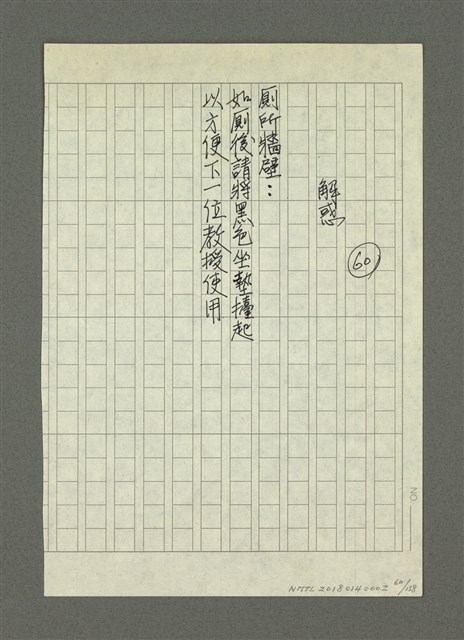 60
解惑
厠所牆壁：
如厠後請將黑色坐墊擡起
以方便下一位教授使用
NO.
NMTL20180140002 60/158